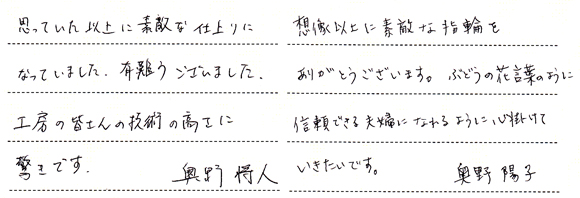 思っていた以上に素敵な仕上りに
なっていました。有難うございました。
工房の皆さんの技術の高さに
驚きです。 奥野 将人
想像以上に素敵な指輪を
ありがとうございます。ぶどうの花言葉のように
信頼できる夫婦になれるように心掛けて
いきたいです。 奥野 陽子